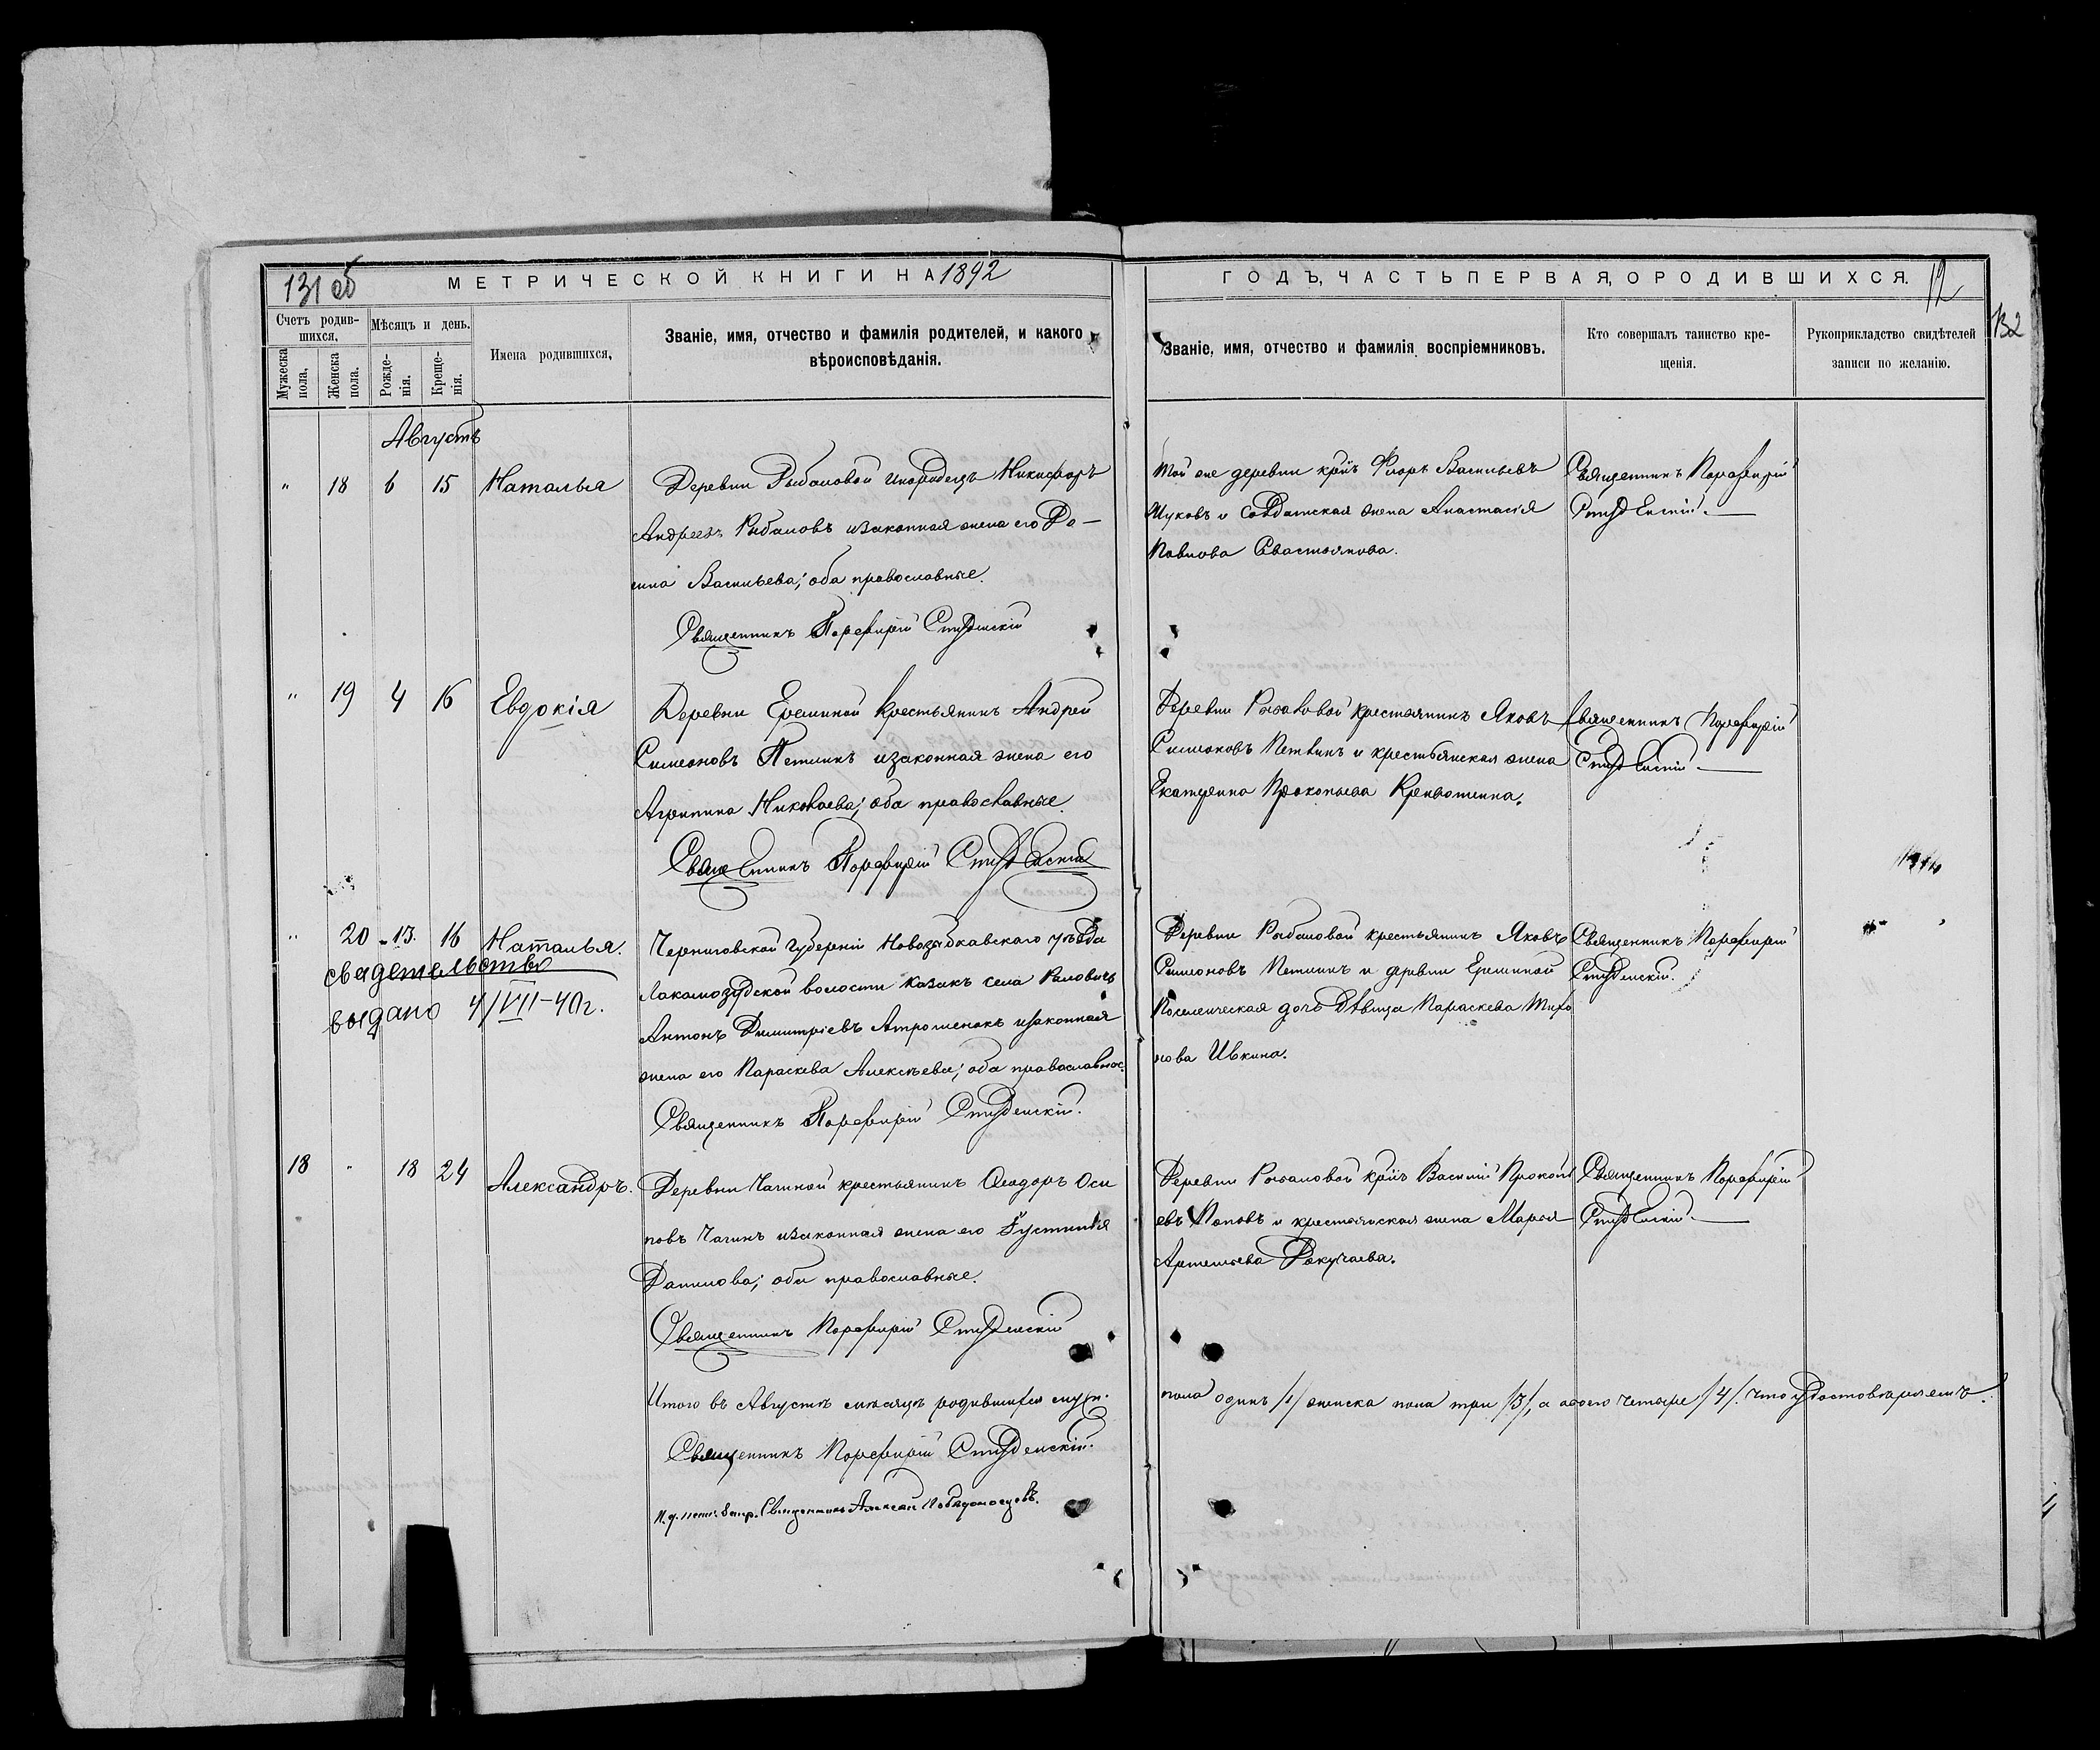 131 об
МЕТРИЧЕСКОЙ КНИГИ НА 1892
ГОДЪ, ЧАСТЬ ПЕРВАЯ, О РОДИВШИХСЯ.
12
132
Счетъ родив-
шихся.
Мѣсяцъ и день.
Мужеска пола.
Женска пола.
Рожде-
нія.
Креще-
нія.
Имена родившихся.
Званіе, имя, отчество и фамилія родителей, и какого
вѣроисповѣданія.
Званіе, имя, отчество и фамилія воспріемниковъ.
Кто совершалъ таинство кре-
щенія.
Рукоприкладство свидѣтелей
записи по желанію.
Августъ
" 18 6 15 Наталья
Деревни Рыбаловой инородецъ Никифоръ
Андреевъ Рыбаловъ изаконная жена его До-
мна Васильева; оба православные.
Священникъ Порфирій Студенскій
Той же деревни кр̃нъ Флоръ Васильевъ
Жуковъ и Солдатская жена Анастасія
Павлова Севастьянова.
Священникъ Порфирій
Студенскій.
" 19 4 16 Евдокія
Деревни Ереминой крестьянинъ Андрей
Симеоновъ Петлинъ изаконная жена его
Агрипина Николаева; оба православные.
Священникъ Порфирій Студенскій
Деревни Рыбаловой крестьянинъ Яковъ
Симеоновъ Петлинъ и крестьянская жена
Екатерина Прокопьева
Священникъ Порфирій
Студенскій.
" 20 13. 16 Наталья.
свидетельство
выдано 4/VII-40г.
Черниговской губерніи Новозыбкавскаго уѣзда
волости казакъ села
Антонъ Димитріевъ Атрошенокъ изаконная
жена его Параскева Алексѣева; оба православные.
Священникъ Порфирій Студенскій.
Деревни Рыбаловой крестьянинъ Яковъ
Симеоновъ Петлинъ и деревни Ереминой
Поселенческая дочь Дѣвица Параскева Тихо
нова Ивкина.
Священникъ Порфирій
Студенскій.
18 " 18 24 Александръ.
Деревни Чагиной крестьянинъ Ѳеодоръ Оси
повъ Чагинъ изаконная жена его Іустинія
Данилова; оба православные.
Священникъ Порфирій Студенскій
Деревни Рыбаловой кр̃нъ Василій Прокопь
евъ Поповъ и крестьянская жена Марья
Артемьева Докучаева.
Священникъ Порфирій
Студенскій.
Итого въ Августѣ мѣсяцѣ родившихся муж.
пола одинъ /1/ женска пола три /3/, а всего четыре /4/. Что удостовѣряемъ.
Священникъ Порфирій Студенскій.
Священникъ Алексѣй Побѣдоносцевъ.